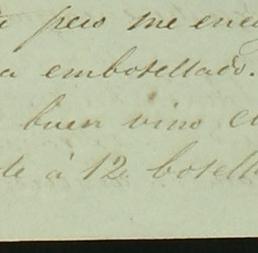 pero me enca
a embotellado.
buen vino el
de à 12 botell